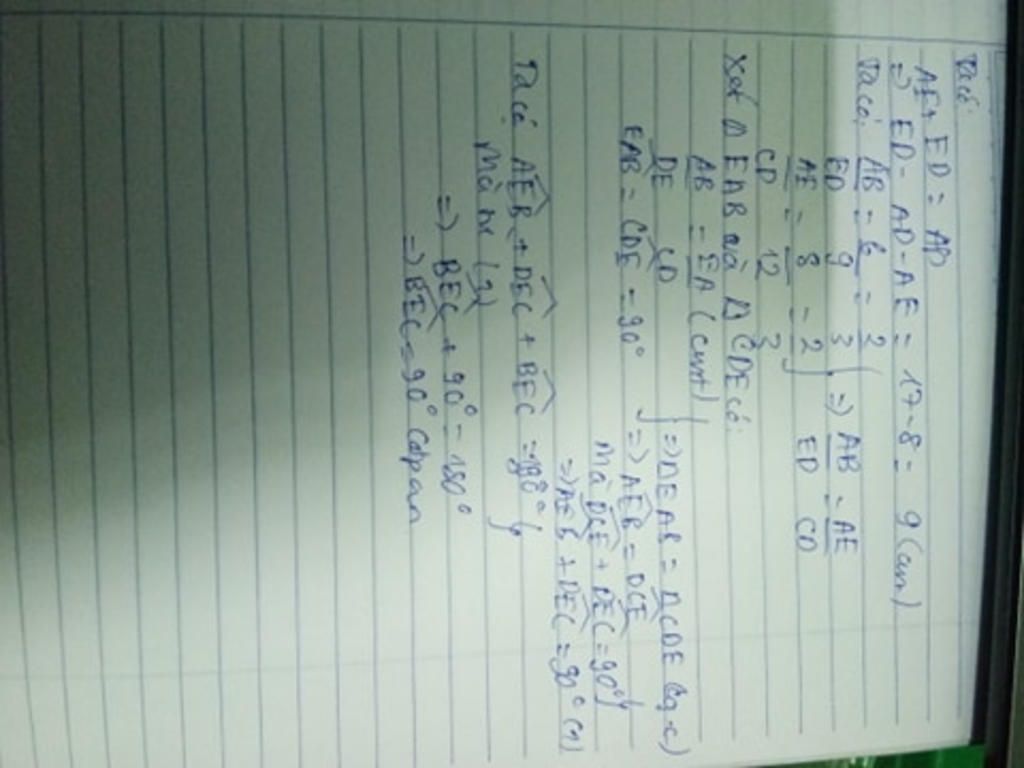 Ta có
AE + ED = AD
=> ED = AD - AE = 17 - 8 = 9 (cm)
Ta có: AB/ED = 6/9 = 2/3
AE/CD = 8/12 = 2/3 } => AB/ED = AE/CD
Xét Δ EAB và Δ CDE có:
AB/DE = EA/CD (cmt)
EAB = CDE = 90° } => Δ EAB = Δ CDE (g-c)
=> AEB = DCE
mà DCE + DEC = 90° }
=> AEB + DEC = 90° (1)
Ta có AEB + DEC + BEC = 180° }
Mà (1)
=> BEC + 90° = 180°
=> BEC = 90° (đpcm